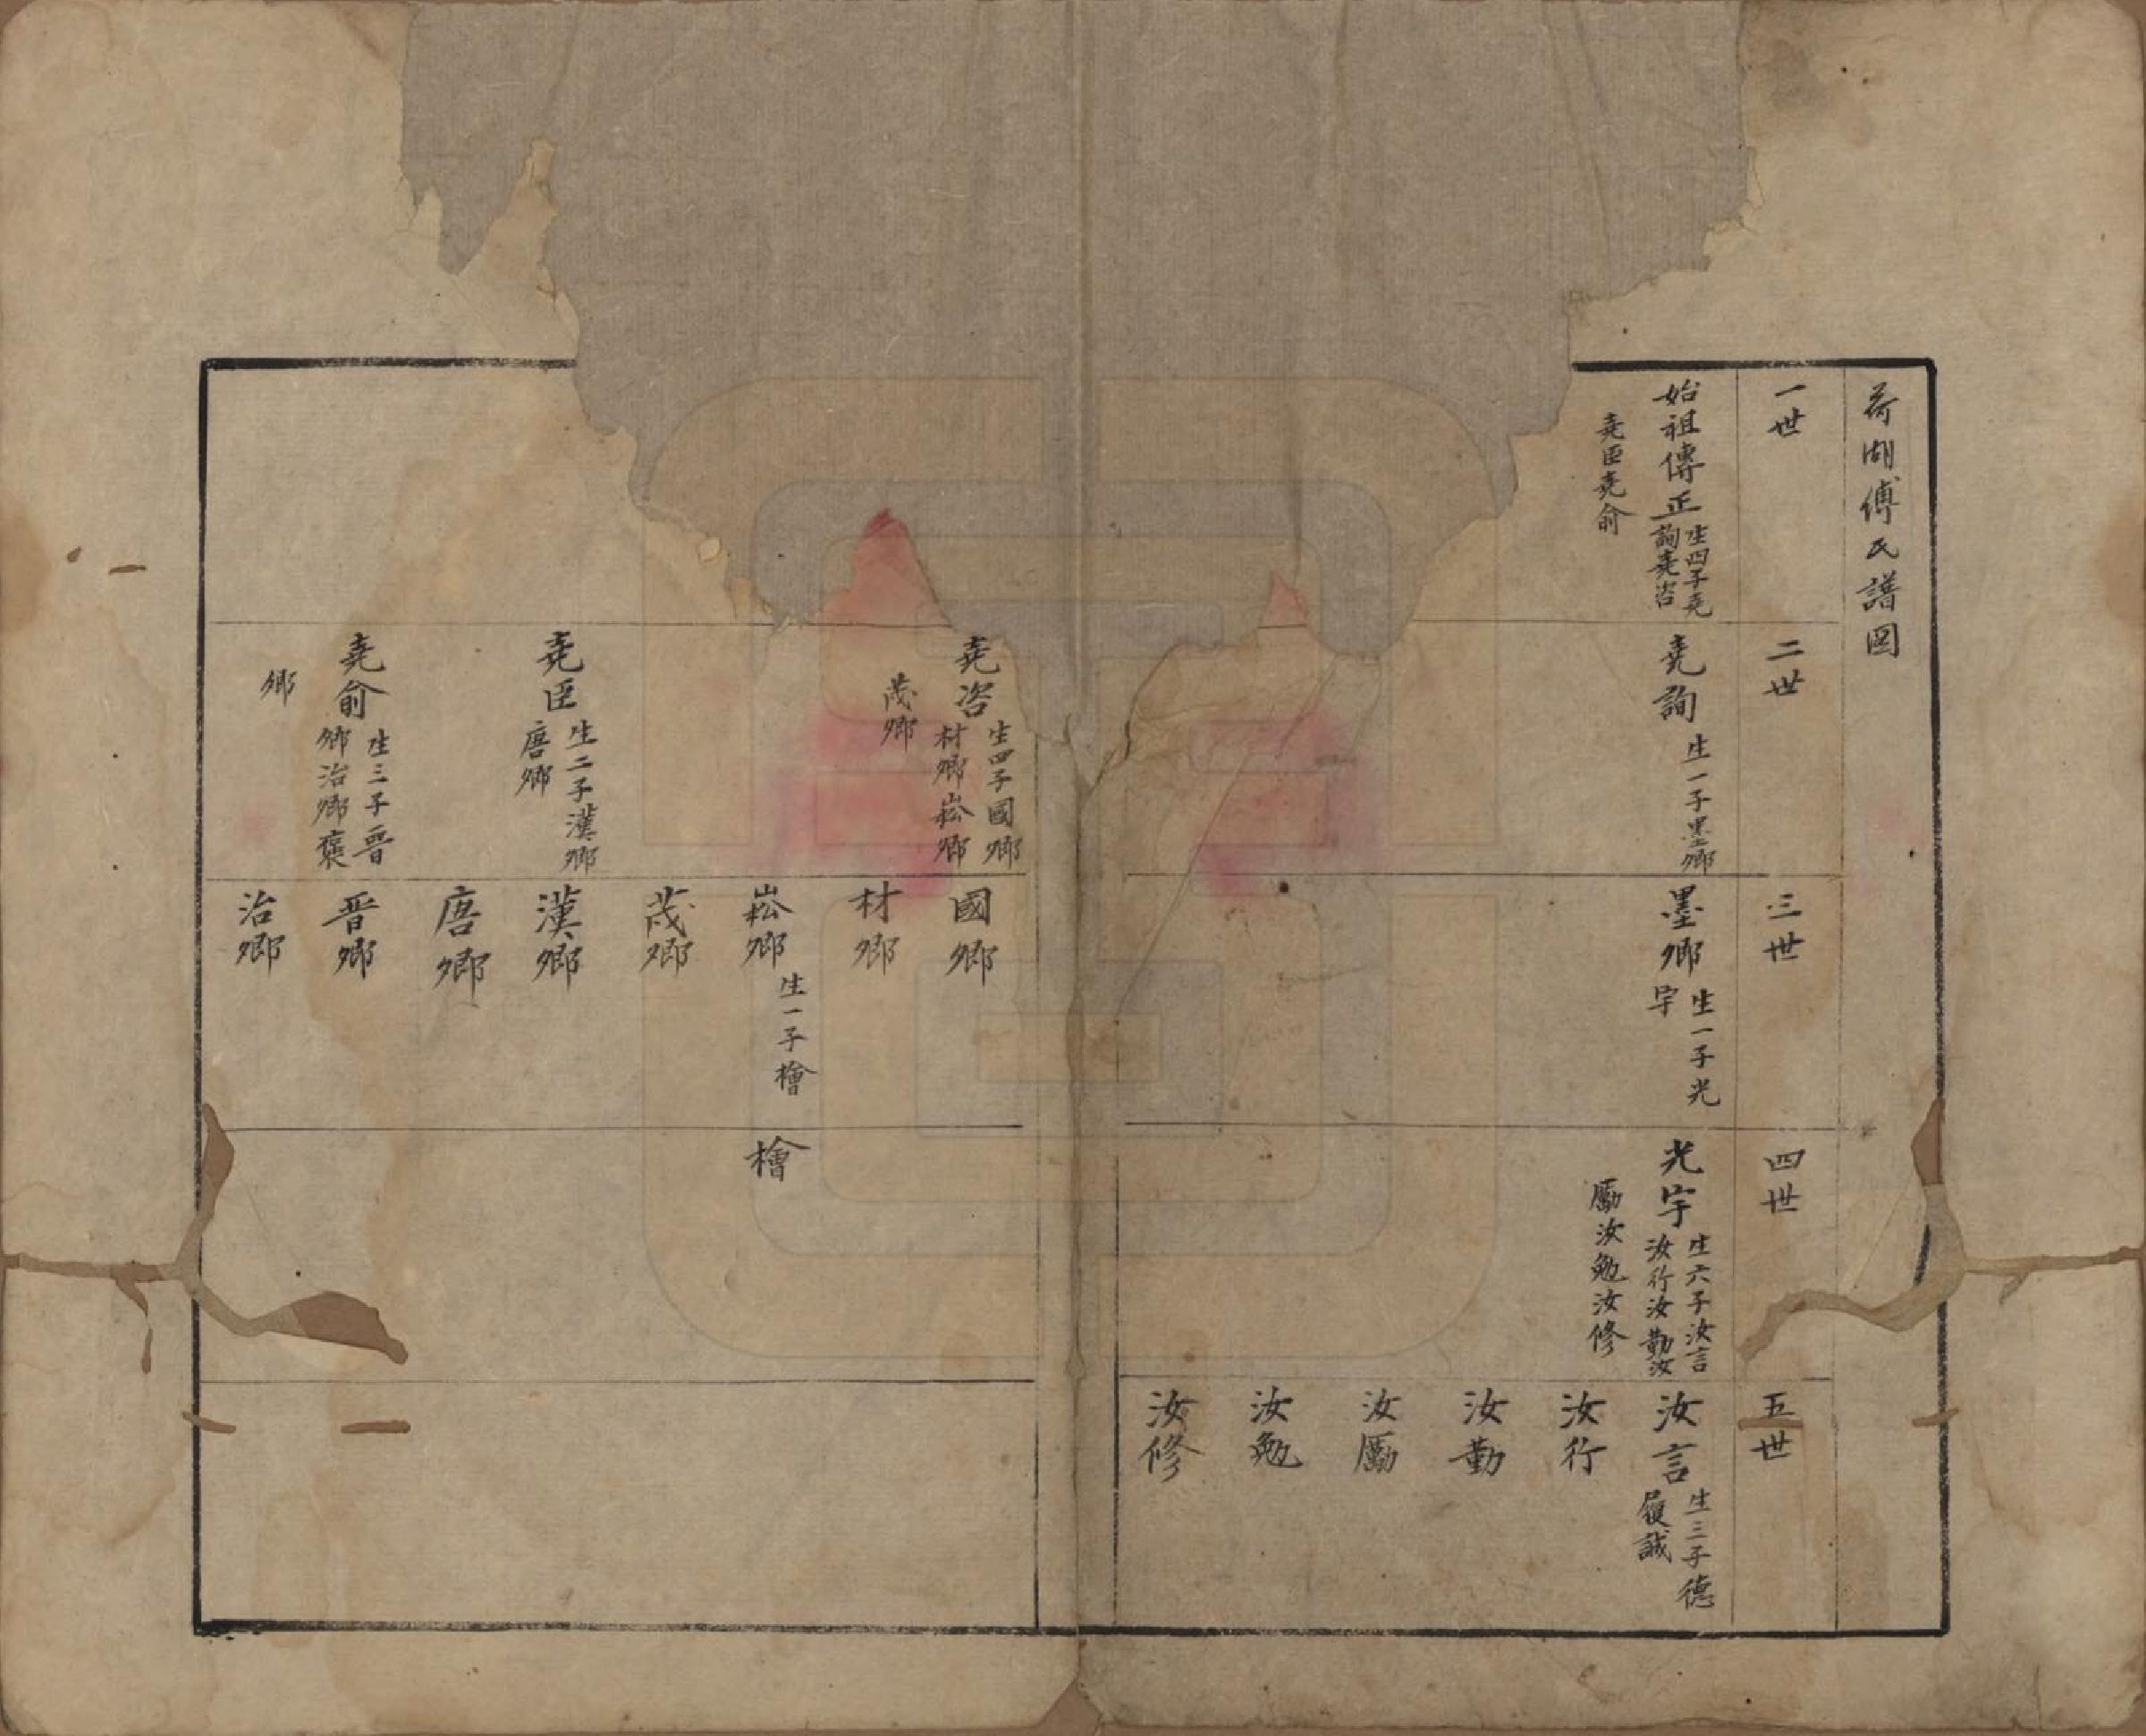 荷湖傅氏譜圖
一世
二世
三世
四世
五世
始祖傳正生四子堯
詢堯咨
堯臣堯俞
堯詢生一子墨卿
墨卿生一子光
宇
光宇生六子汝言
汝行汝勤汝
勵汝勉汝修
汝言生三子德
履誠
汝行
汝勤
汝勵
汝勉
汝修
堯咨生四子國卿
材卿崧卿
茂卿
堯臣生二子漢卿
唐卿
堯俞生三子晋
卿治卿襃
卿
國卿
材卿
崧卿生一子檜
茂卿
漢卿
唐卿
晋卿
治卿
檜